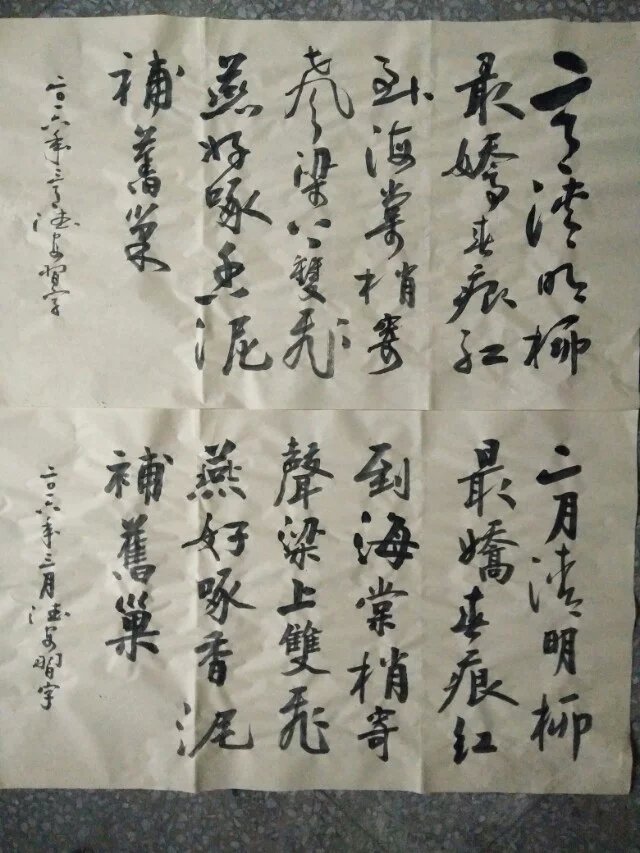 二月清明柳
最嬌春痕紅
到海棠梢寄
聲梁上雙飛
燕好啄香泥
補舊巢
二〇一六年三月 習字
二月清明柳
最嬌春痕紅
到海棠梢寄
聲梁上雙飛
燕好啄香泥
補舊巢
二〇一六年三月 習字